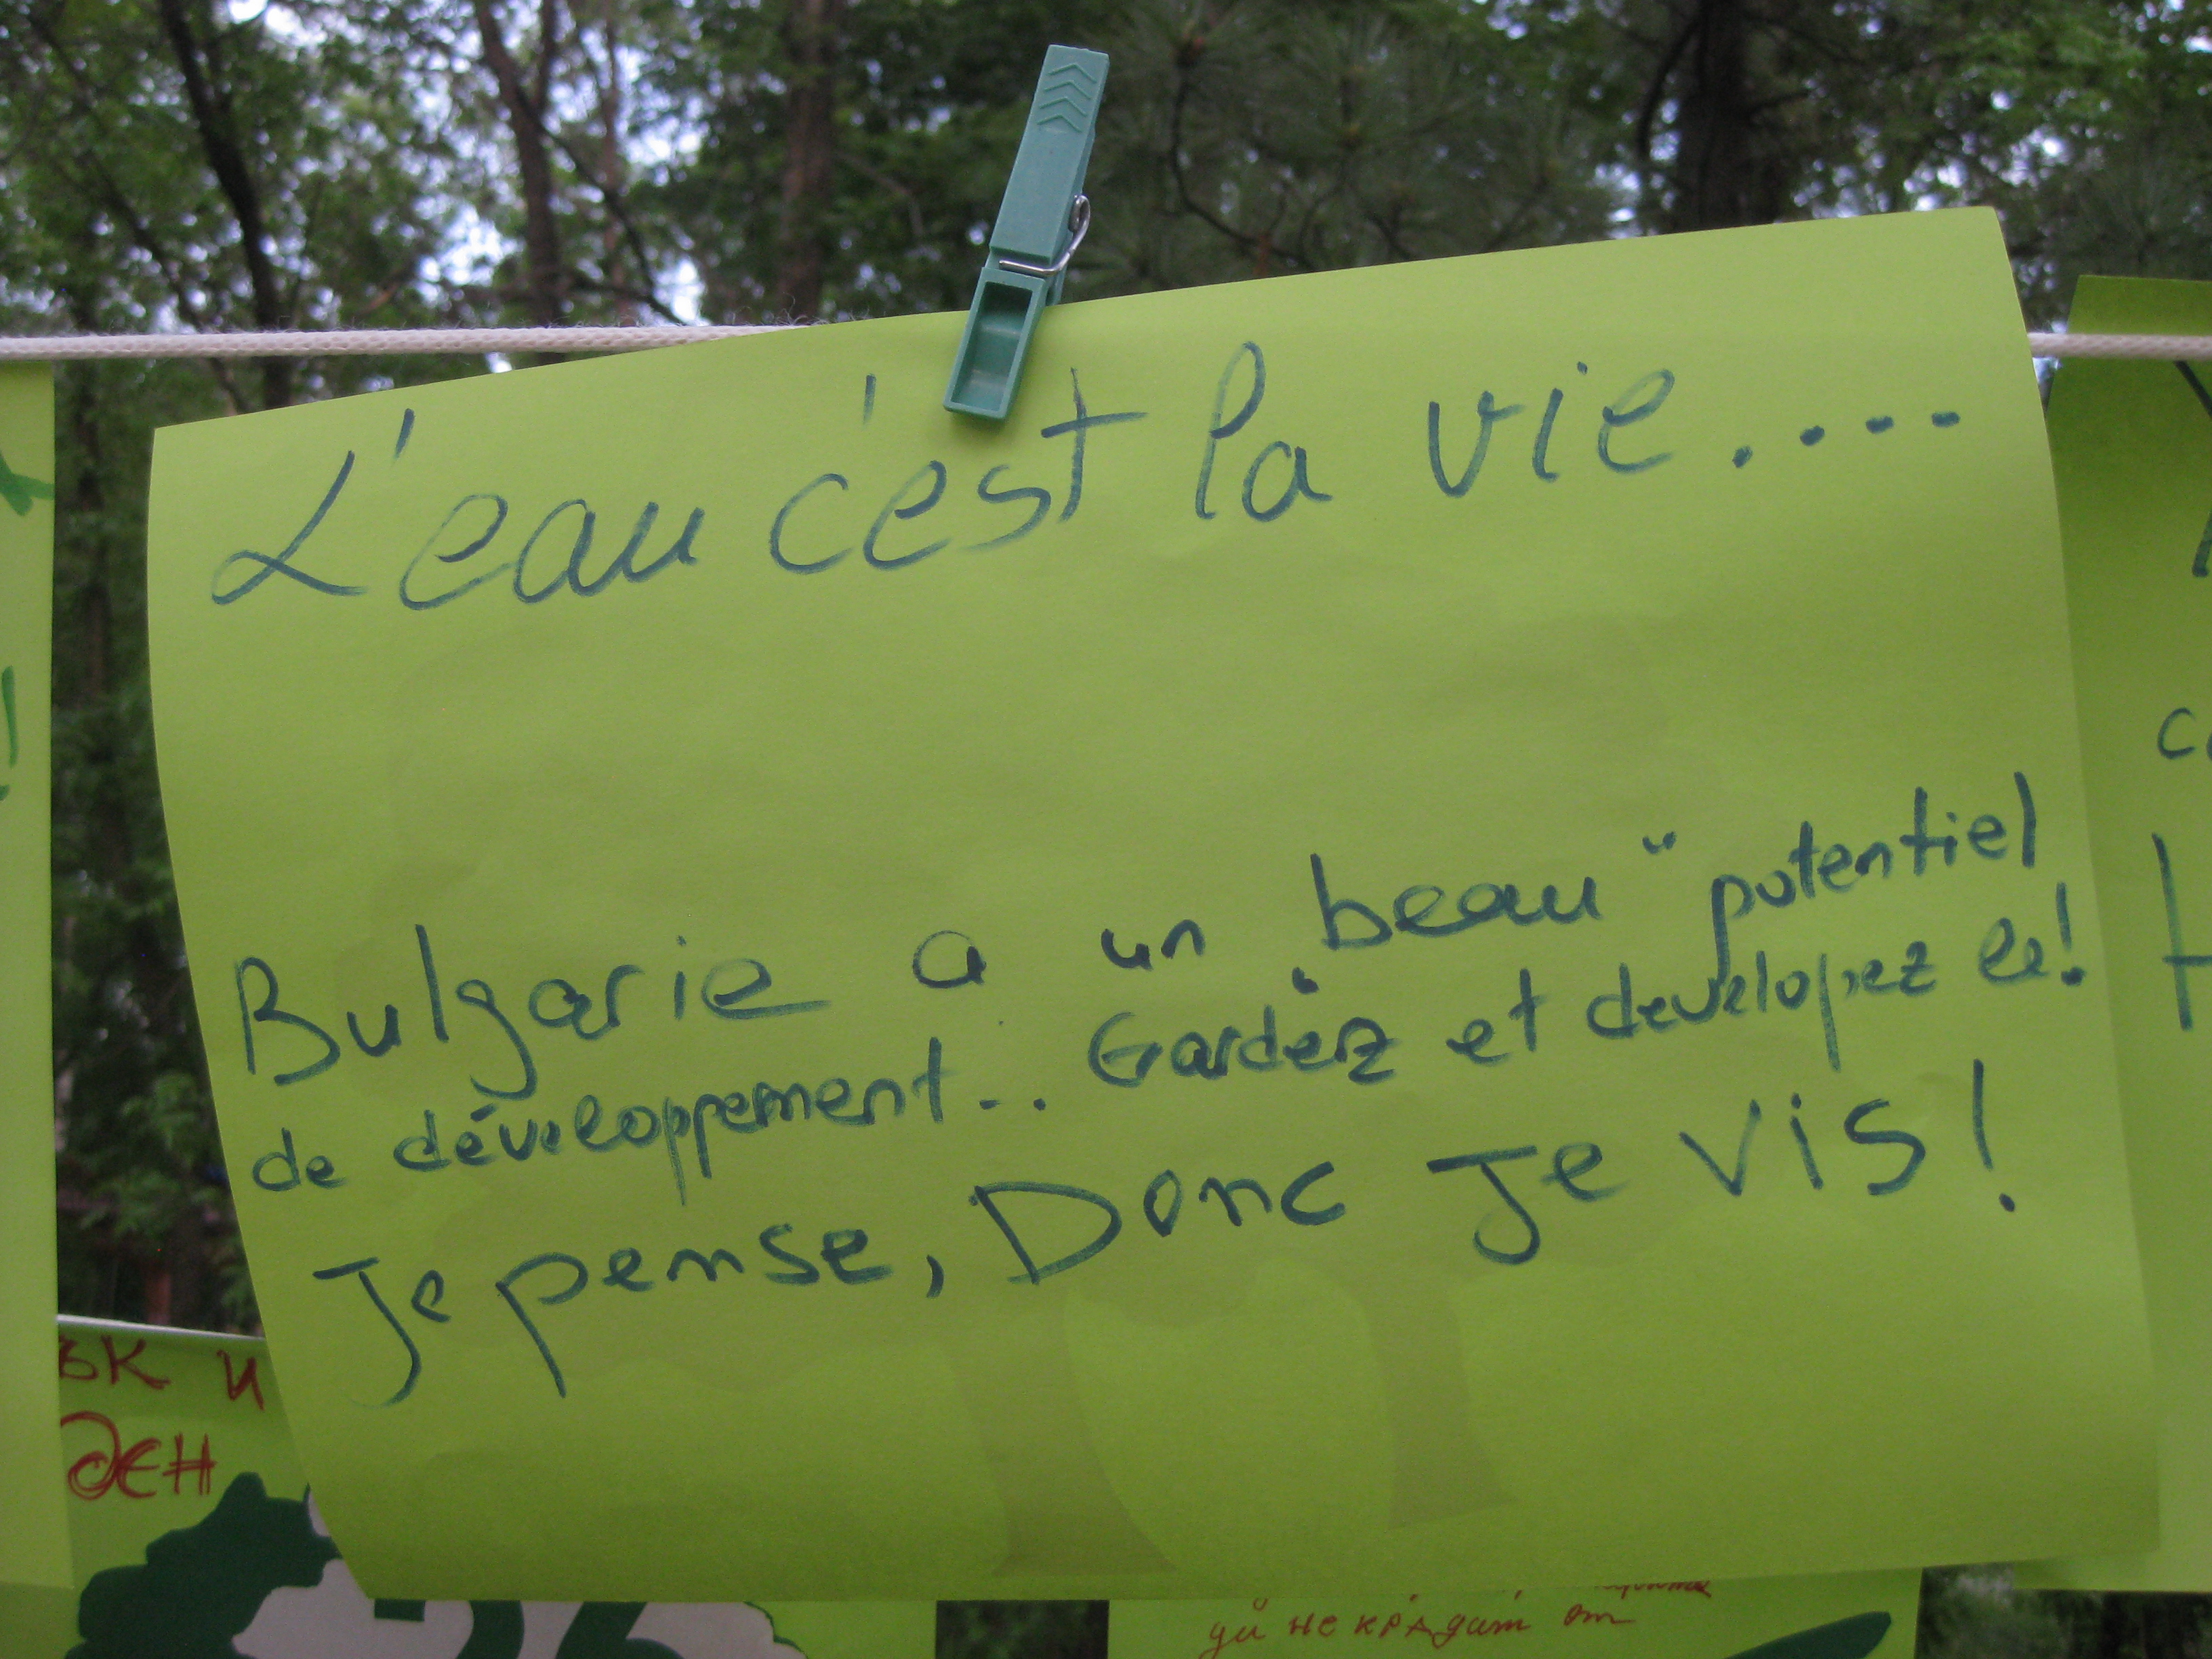 L'eau c'est la vie....
Bulgarie a un „beau“ potentiel
de développement... Gardez et developez le!
Je pense, Donc Je vis!
ък и
ден
да не крадат от